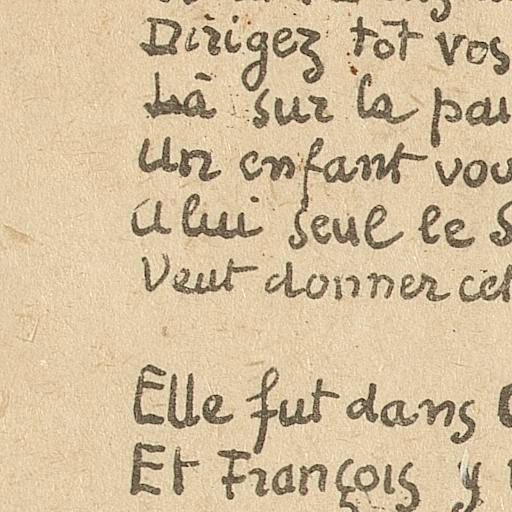 Dirigez tôt vos
Là sur la pai
Un enfant vou
A lui seul le S
Veut donner cet
Elle fut dans
Et François y